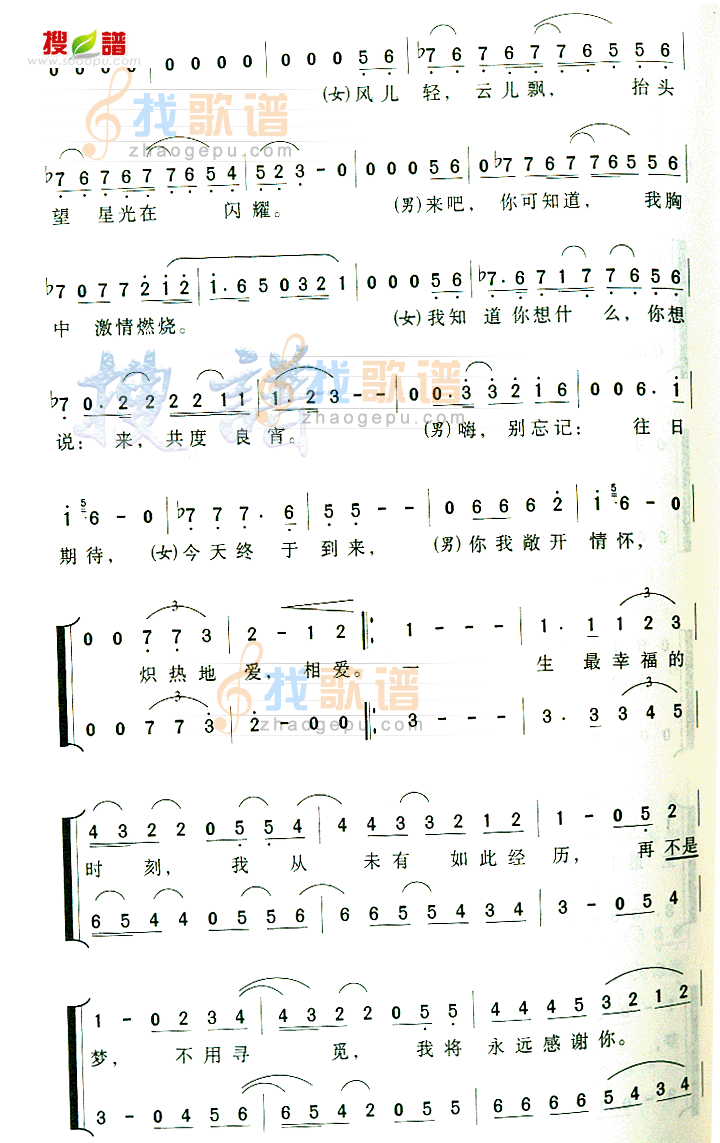 搜 譜
www.sooopu.com
0 0 0 0 | 0 0 0 0 | 0 0 0 5 6 | ♭7 6 7 6 7 7 6 5 5 6
(女)风儿 轻，云儿飘， 抬头
找歌谱
zhaogepu.com
♭7 6 7 6 7 7 7 6 5 4 | 5 2 3 - 0 | 0 0 0 5 6 | 0 ♭7 7 6 7 7 6 5 5 6
望 星光在 闪耀。 (男)来吧，你可知道， 我胸
♭7 0 7 7 2 1 2 | 1. 6 5 0 3 2 1 | 0 0 0 5 6 | ♭7. 6 7 1 7 7 6 5 6
中 激情燃烧。 (女)我知 道你想什 么，你想
搜譜 找歌谱
zhaogepu.com
♭7 0. 2 2 2 2 2 1 1 | 1. 2 3 - - | 0 0. 3 3 2 1 6 | 0 0 6. 1
说：来，共度良宵。 (男)嗨，别忘记：往日
1 5 6 - 0 | ♭7 7 7. 6 | 5 5 - - | 0 6 6 6 2 | 1 5 6 - 0
期待， (女)今天终于到来， (男)你我敞开情怀，
0 0 7 7 3 | 2 - 1 2 :| 1 - - - | 1. 1 1 2 3
3 3
炽热地爱，相爱。一 生最幸福的
找歌谱
zhaogepu.com
3 3
0 0 7 7 3 | 2 - 0 0 :| 3 - - - | 3. 3 3 4 5
4 3 2 2 0 5 5 4 | 4 4 3 3 2 1 2 | 1 - 0 5 2
时 刻， 我 从 未有如此经历， 再不是
6 5 4 4 0 5 5 6 | 6 6 5 5 4 3 4 | 3 - 0 5 4
1 - 0 2 3 4 | 4 3 2 2 0 5 5 | 4 4 4 5 3 2 1 2
梦， 不用寻 觅， 我将 永远感谢你。
3 - 0 4 5 6 | 6 5 4 2 0 5 5 | 6 6 6 6 5 4 3 4